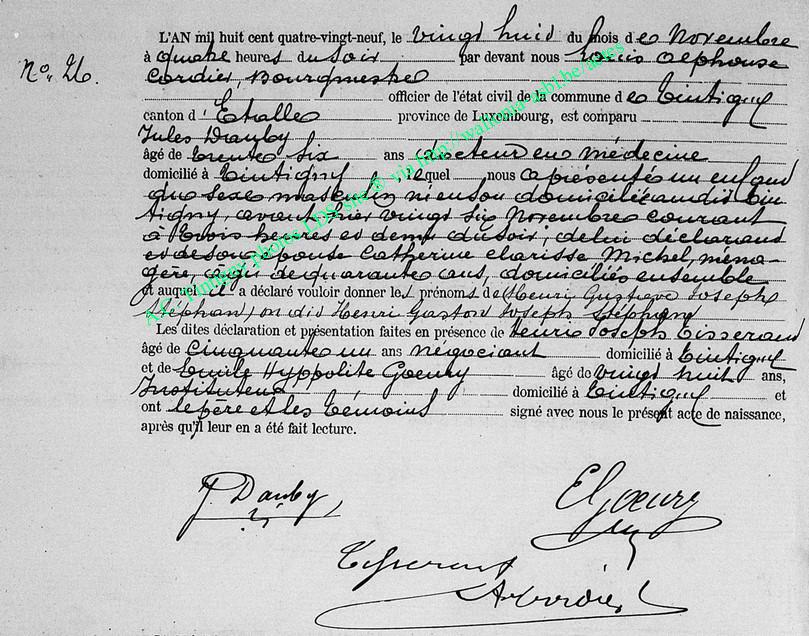 L'AN mil huit cent quatre-vingt-neuf, le vingt huit du mois de Novembre
No. 26.
à quatre heures du soir par devant nous Louis Alphonse
Cordier, Bourgmestre
officier de l'état civil de la commune de Tintigny
canton d'Etalle province de Luxembourg, est comparu
Jules Dauby
âgé de trente six ans docteur en médecine
domicilié à Tintigny, lequel nous a présenté un enfant
du sexe masculin né en son domicile audit Tin-
tigny, avant hier vingt six Novembre courant
à trois heures et demi du soir, de lui déclarant
et de son épouse Catherine Clarisse Michel, ména-
gère, agée de quarante ans, domiciliés ensemble
et auquel il a déclaré vouloir donner les prénoms de Henri Gustave Joseph
Stéphany on dit Henri Gaston Joseph Stéphany
Les dites déclaration et présentation faites en présence de Henri Joseph Tisserand
âgé de cinquante un ans négociant domicilié à Tintigny
et de Emile Hyppolite Goeury âgé de vingt huit ans,
Instituteur domicilié à Tintigny et
ont le père et les témoins signé avec nous le présent acte de naissance,
après qu'il leur en a été fait lecture.
J. Dauby
E Goeury
Tisserant
A. Cordier